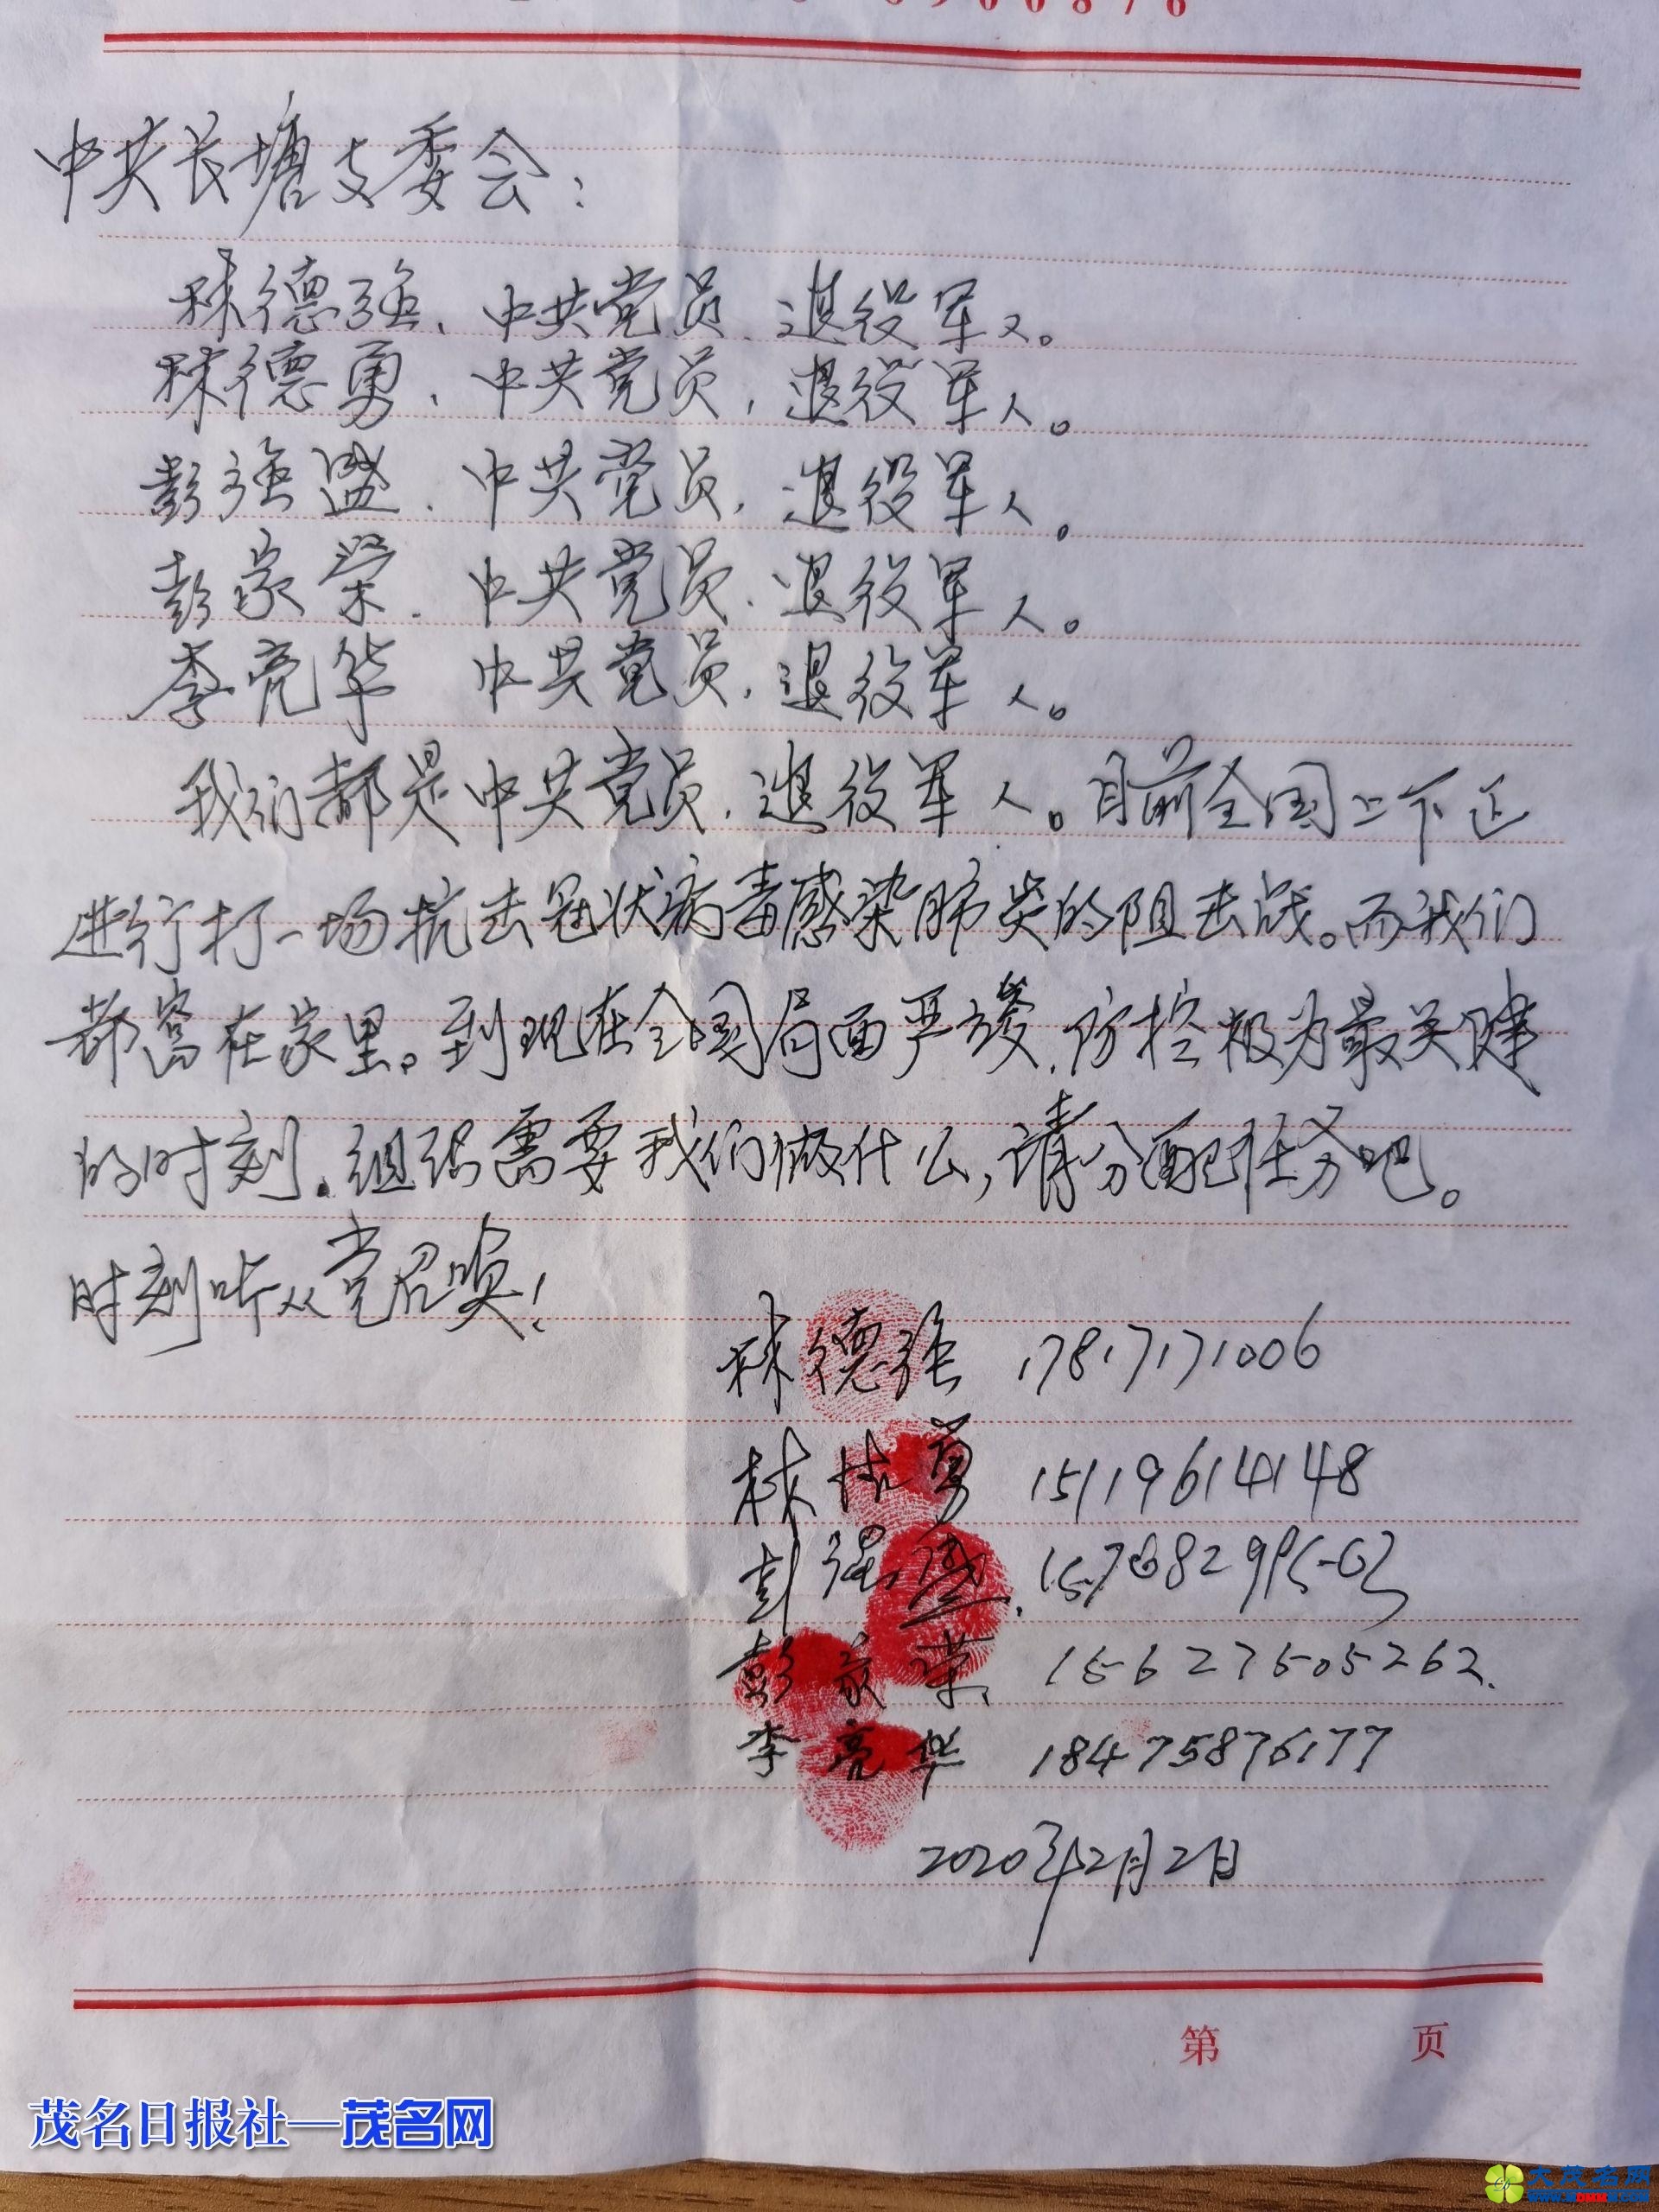 中共长塘支委会：
林德强、中共党员、退役军人。
林德勇、中共党员，退役军人。
彭强盛、中共党员，退役军人。
彭家荣、中共党员、退役军人。
李亮华 中共党员，退役军人。
我们都是中共党员，退役军人。目前全国上下正
进行打一场抗击冠状病毒感染肺炎的阻击战。而我们
都窝在家里。到现在全国局面严峻，防控极为最关键
的时刻，组织需要我们做什么，请分配任务吧。
时刻听从党召唤！
林德强 17817171006
林德勇 15119614148
彭强盛
彭家荣、15627505262.
李亮华 18475876177
2020年2月2日
第 页
茂名日报社—茂名网
大茂名网